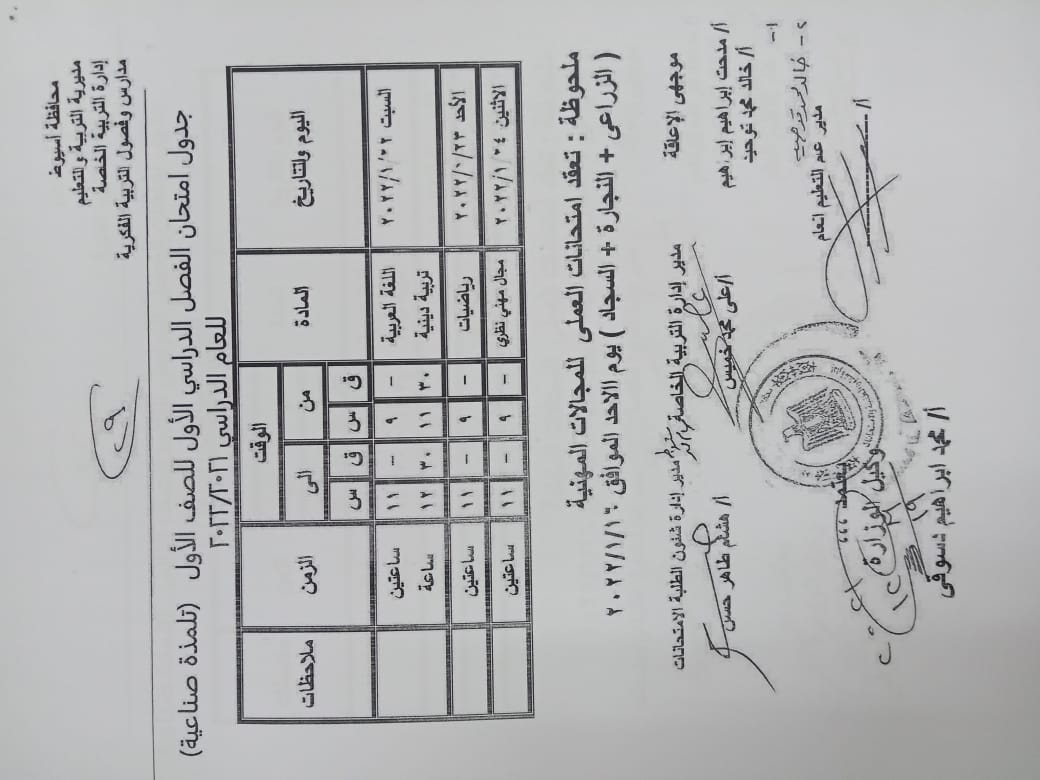 محافظة أسيوط
مديرية التربية والتعليم
إدارة التربية الخاصة
مدارس وفصول التربية الفكرية
٩
جدول امتحان الفصل الدراسي الأول للصف الأول (تلمذة صناعية)
للعام الدراسي ٢٠٢٢/٢٠٢١
اليوم والتاريخ المادة الوقت الزمن ملاحظات
من الى
ق س ق س
السبت ٢٠٢٢/١/٢٢ اللغة العربية - ٩ - ١١ ساعتين
تربية دينية ٣٠ ١١ ٣٠ ١٢ ساعة
الأحد ٢٠٢٢/١/٢٣ رياضيات - ٩ - ١١ ساعتين
الاثنين ٢٠٢٢/١/٢٤ مجال مهني نظري - ٩ - ١١ ساعتين
ملحوظة : تعقد امتحانات العملى للمجالات المهنية
( الزراعى + النجارة + السجاد ) يوم الاحد الموافق ٢٠٢٢/١/١٦
موجهى الاعاقة مدير إدارة التربية الخاصة مدير إدارة شئون الطلبة الامتحانات
أ/ مدحت إبراهيم إبراهيم أ/على محمد خميس أ/ هشام طاهر حسن
أ/ خالد محمد توحيد
١-
٢-
مدير عم التعليم العام
أ/
يعتمد ،،،
وكيل الوزارة
أ/ محمد ابراهيم دسوقى